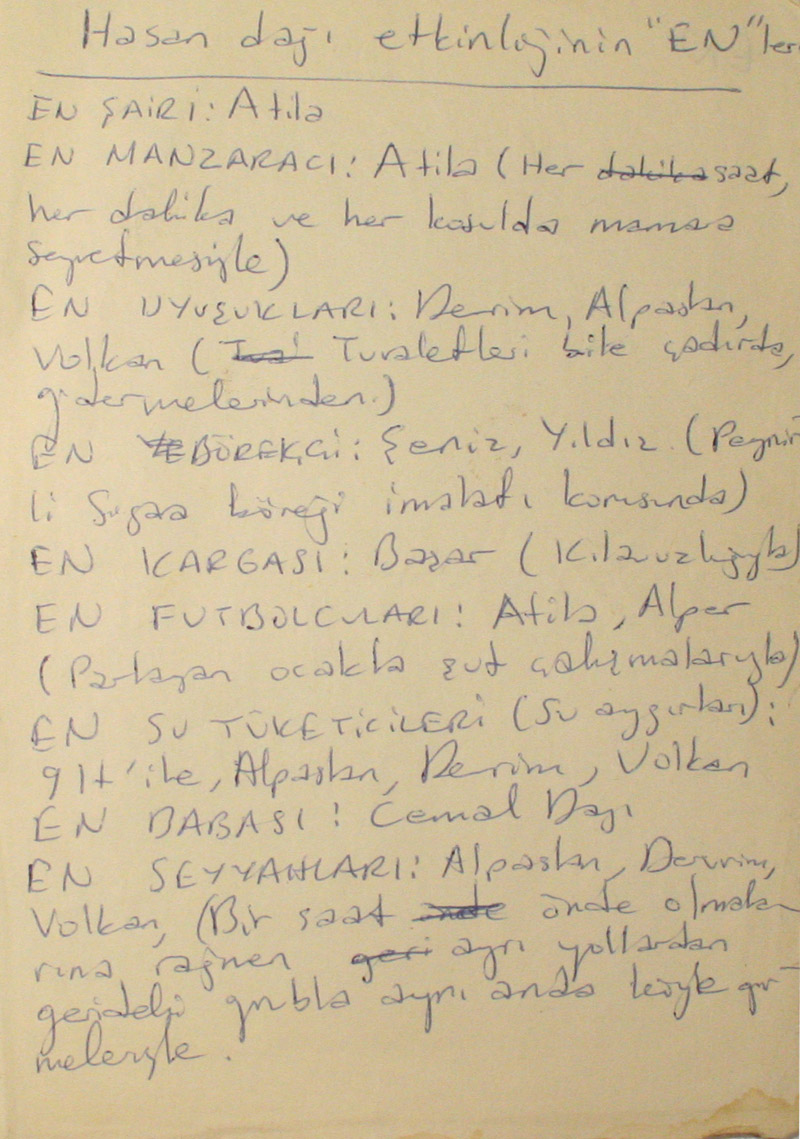 Hasan dağı etkinliğinin "EN"leri
EN ŞAİRİ: Atila
EN MANZARACI: Atila (Her dakika saat,
her dakika ve her koşulda manzara
seyretmesiyle)
EN UYUŞUKLARI: Devrim, Alpaslan,
Volkan ( Tuvaletleri bile çadırda,
gidermelerinden.)
EN BÖREKÇİ: Şeniz, Yıldız (Peynir-
li Sigara böreği imalatı konusunda)
EN KARGASI: Başar (Kılavuzluğuyla)
EN FUTBOLCULARI: Atila, Alper
(Parlayan ocakla şut çalışmalarıyla)
EN SU TÜKETİCİLERİ (Su aygırları):
9 lt'ile, Alpaslan, Devrim, Volkan
EN BABASI: Cemal Dayı
EN SEYYAHLARI: Alpaslan, Devrim,
Volkan, (Bir saat önde önde olmala-
rına rağmen geri ayrı yollardan
gerideki grubla aynı anda köyle gir-
meleriyle.